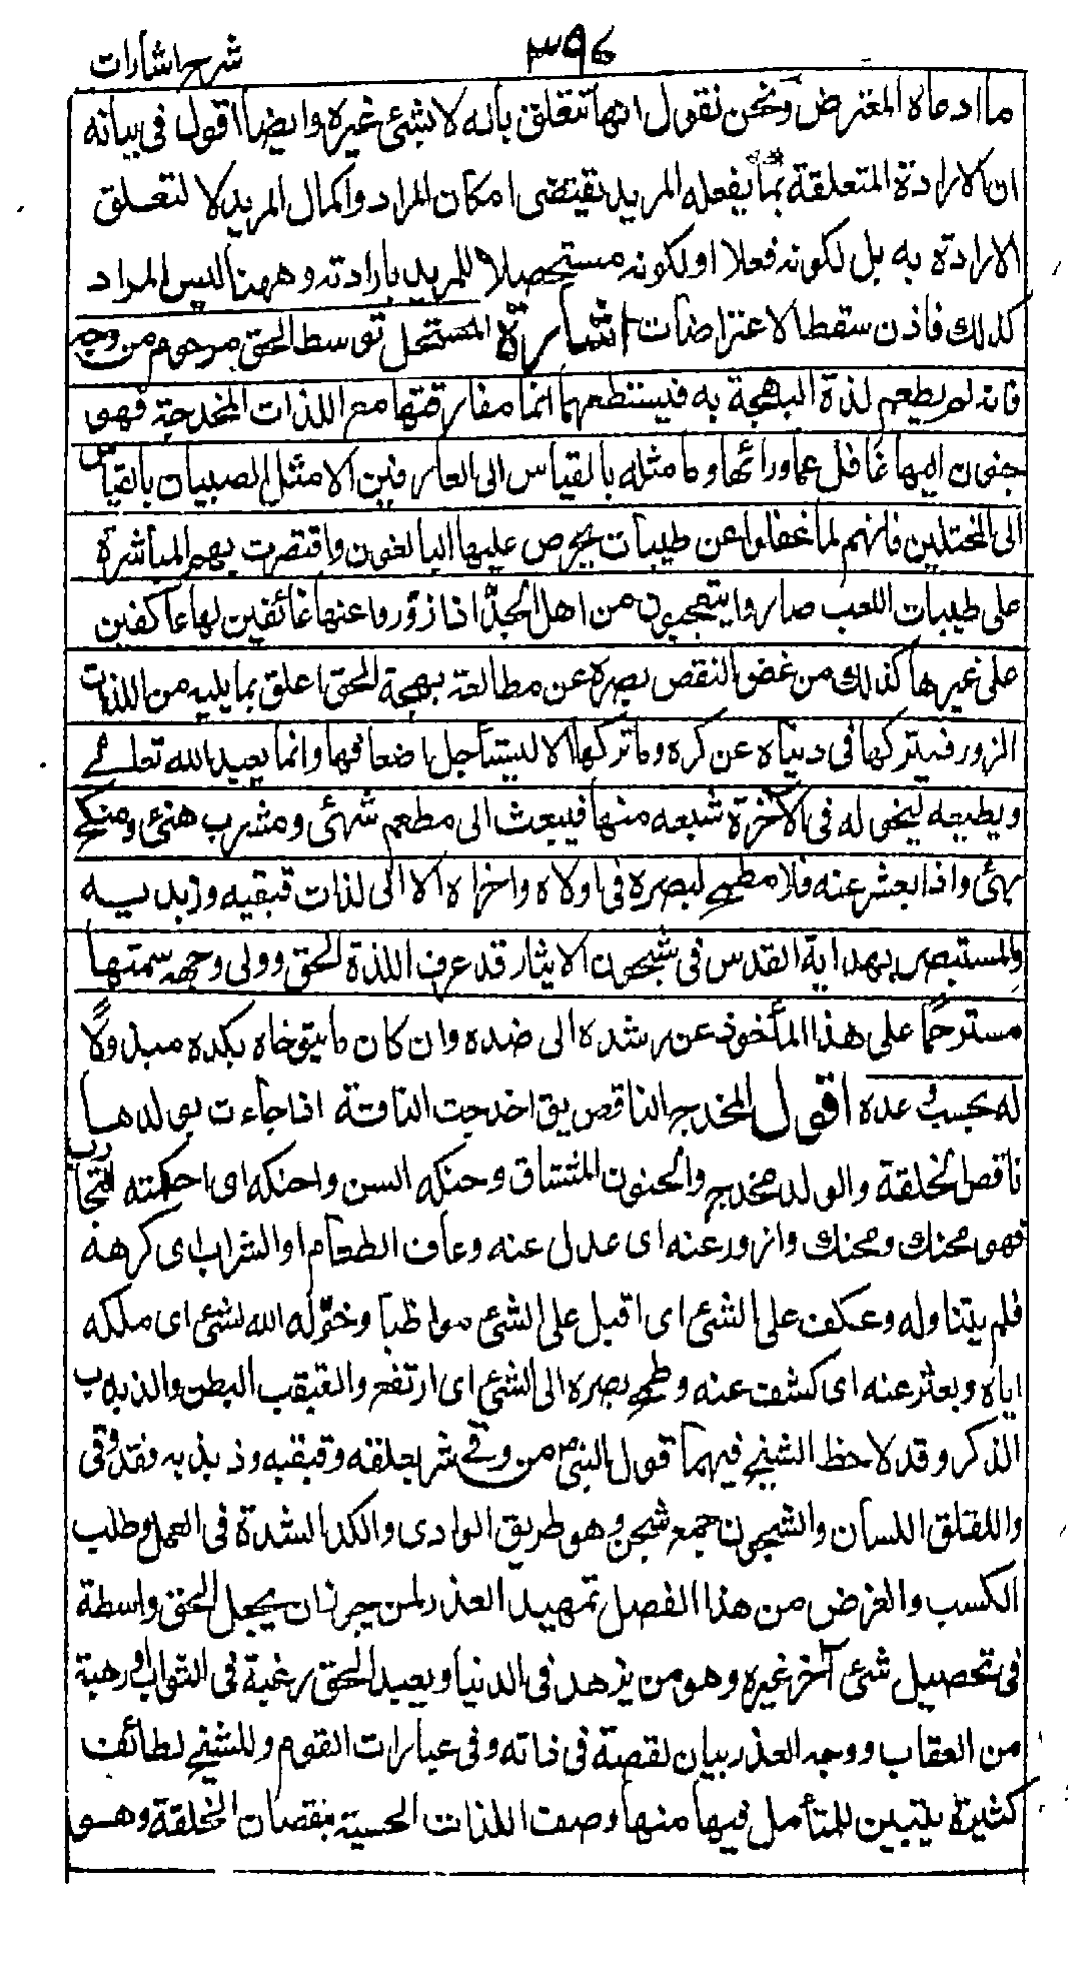 شرح اشارات
٣٩٤
ما ادعاه المعترض ونحن نقول انها تتعلق بالله لا بشئ غيره وايضا اقول فى بيانه
ان الارادة المتعلقة بما يفعله المريد يقتضى امكان المراد واكمال المريد لا لتعلق
الارادة به بل لكونه فعلا او لكونه مستحصلا للمريد بارادته وههنا ليس المراد
كذلك فاذن سقط الاعتراضات اشارة المستحل توسط الحق مرحوم من وجه
فانه لم يطعم لذة البهجة به فيستطعمها انما مفارقتها مع اللذات المخدجة فهو
حنون اليها غافل عما ورائها وما مثله بالقياس الى العارفين الا مثل الصبيان بالقياس
الى المحنكين فانهم لما غفلوا عن طيبات يحرص عليها البالغون واقتصرت بهم المباشرة
على طيبات اللعب صاروا يتعجبون من اهل الجد اذا ازوروا عنها عائفين لها عاكفين
على غيرها كذلك من غض النقص بصره عن مطالعة بهجة الحق اعلق بما يليه من اللذات
الزور فيتركها فى دنياه عن كره وما تركها الا ليستأجل اضعافها وانما يعبد الله تعالى
ويطيعه ليخوله فى الآخرة شبعه منها فيبعث الى مطعم شهئ ومشرب هنئ ومنكح
بهئ واذا بعثر عنه فلا مطمح لبصره فى اولاه واخراه الا الى لذات قبقبه وذبذبه
والمستبصر بهداية القدس فى شجون الايثار قد عرف اللذة الحق وولى وجهه سمتها
مسترحما على هذا المأخوذ عن رشده الى ضده وان كان ما يتوخاه بكده مبذولا
له بحسب وعده اقول المخدج الناقص يق اخدجت الناقة اذا جاءت بولدها
ناقص الخلقة والولد مخدج والحنون المشتاق وحنكه السن واحنكه اى احكمته التجارب
فهو محنك ومحنك وازور عنه اى عدل عنه وعاف الطعام او الشراب اى كرهه
فلم يتناوله وعكف على الشئ اى اقبل على الشئ مواظبا وخوله الله لشئ اى ملكه
اياه وبعثر عنه اى كشف عنه وطمح بصره الى الشئ اى ارتفع والقبقب البطن والذبذب
الذكر وقد لاحظ الشيخ فيهما قول النبى ص من وقى شر لقلقه وقبقبه وذبذبه فقد وقى
واللقلق اللسان والشجون جمع شجن وهو طريق الوادى والكد الشدة فى العمل وطلب
الكسب والغرض من هذا الفصل تمهيد العذر لمن يجوز ان يجعل الحق واسطة
فى تحصيل شئ آخر غيره وهو من يزهد فى الدنيا ويعبد الحق رغبة فى الثواب او رهبة
من العقاب ووجه العذر بيان نقصه فى ذاته وفى عبارات القوم وللشيخ لطائف
كثيرة يتبين للمتأمل فيها منها وصف اللذات الحسية بنقصان الخلقة وهو